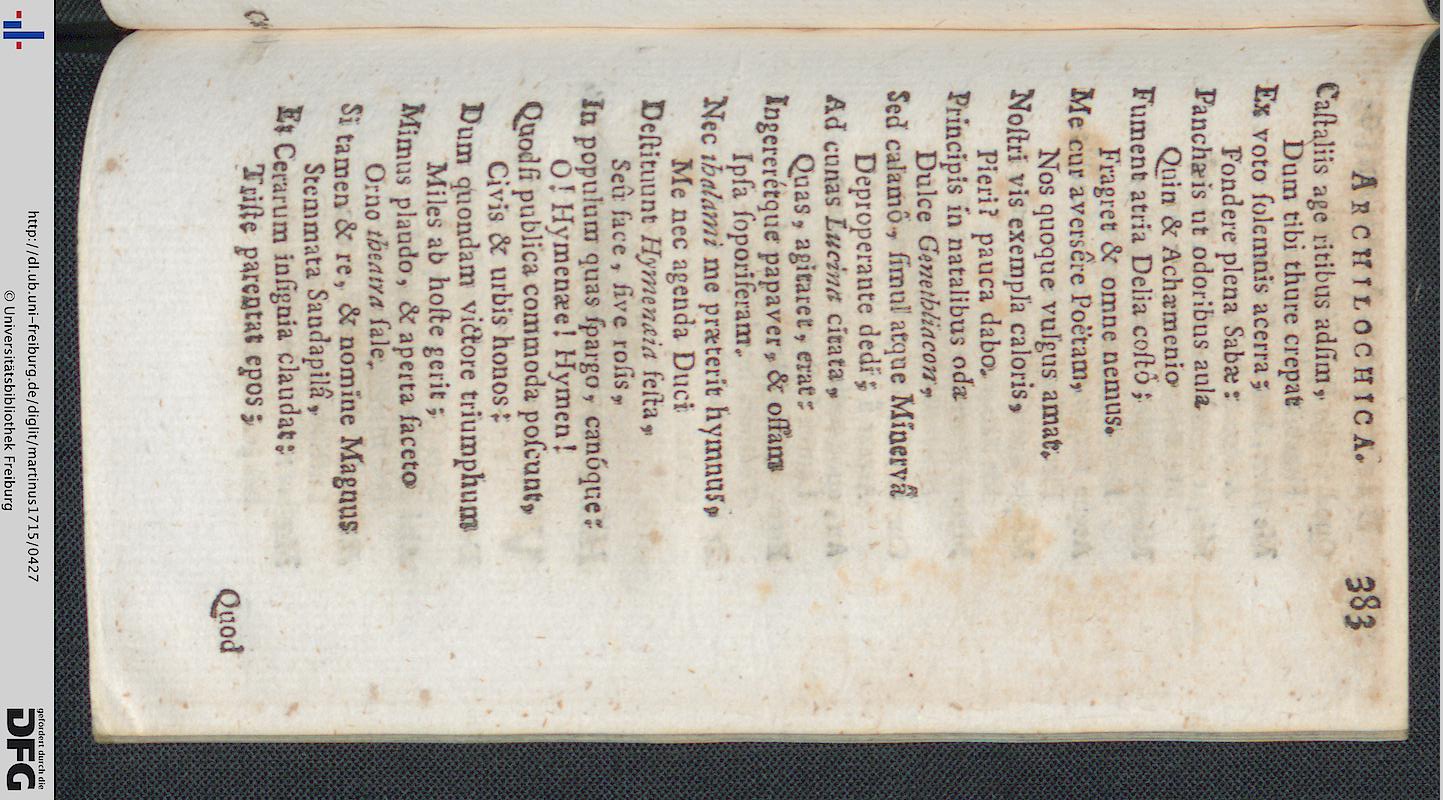 ARCHILOCHICA. 383
Caſtaliis age ritibus adſim,
Dum tibi thure crepat
Ex voto ſolemnis acerra;
Pondere plena Sabæ:
Panchæis ut odoribus aula
Quin & Achæmenio
Fument atria Delia coſtô;
Fragret & omne nemus.
Me cur aversêre Poëtam,
Nos quoque vulgus amat.
Noſtri vis exempla caloris,
Pieri? pauca dabo.
Principis in natalibus oda
Dulce Genethliacon,
Sed calamô, ſimul atque Minervâ
Deproperante dedi;
Ad cunas Lucina citata,
Quas, agitaret, erat:
Ingereretque papaver, & offam
Ipſa ſoporiferam.
Nec thalami me præterit hymnus,
Me nec agenda Duci
Deſtituunt Hymenaia feſta,
Seû face, ſive roſis,
In populum quas ſpargo, canóque:
O! Hymenæe! Hymen!
Quodſi publica commoda poſcunt,
Civis & urbis honos:
Dum quondam victore triumphum
Miles ab hoſte gerit;
Mimus plaudo, & aperta faceto
Orno theatra ſale.
Si tamen & re, & nomine Magnus
Stemmata Sandapilâ,
Et Cerarum inſignia claudat:
Triſte parentat epos;
Quod
http://dl.ub.uni-freiburg.de/diglit/martinus1715/0427
© Universitätsbibliothek Freiburg
gefördert durch die
DFG